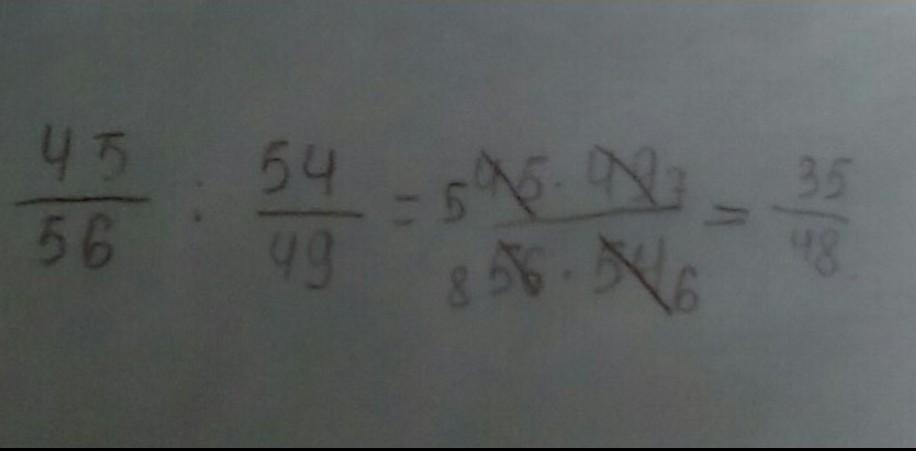 45/56 : 54/49 = 5 45 · 49 7 / 8 56 · 54 6 = 35/48